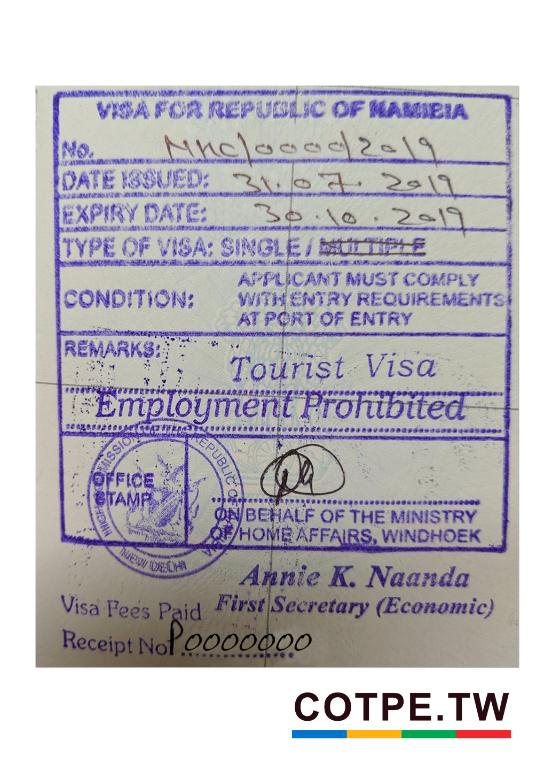 VISA FOR REPUBLIC OF NAMIBIA
No. NHC/0000/2019
DATE ISSUED: 31.07.2019
EXPIRY DATE: 30.10.2019
TYPE OF VISA: SINGLE / MULTIPLE
CONDITION: APPLICANT MUST COMPLY
WITH ENTRY REQUIREMENTS
AT PORT OF ENTRY
REMARKS:
Tourist Visa
Employment Prohibited
OFFICE
STAMP
HIGH COMMISSION REPUBLIC OF
NEW DELHI
ON BEHALF OF THE MINISTRY
OF HOME AFFAIRS, WINDHOEK
Annie K. Naanda
First Secretary (Economic)
Visa Fees Paid
Receipt No P0000000
COTPE.TW